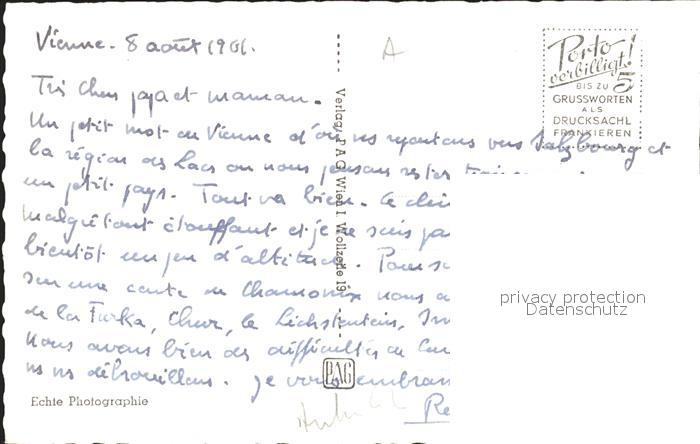 Vienne - 8 août 1961.
A
Porto
verbilligt!
BIS ZU 5
GRUSSWORTEN
ALS
DRUCKSACHE
FRANKIEREN
Très chers papa et maman.
Un petit mot de Vienne d'où ns repartons vers Salzbourg et
la région des Lacs où nous pensons rester
un petit pays. Tout va bien. Le
malgré tout étouffant et je ne suis pa
bientôt un peu d'altitude. Pour
sur une carte de Chamonix nous a
de la Furka, Chur, le Lichstentein,
Nous avons bien des difficultés de
ns ns débrouillons. Je vous embras
Re
Verlag P A G Wien I Wollzeile 19
PAG
Echte Photographie
privacy protection
Datenschutz